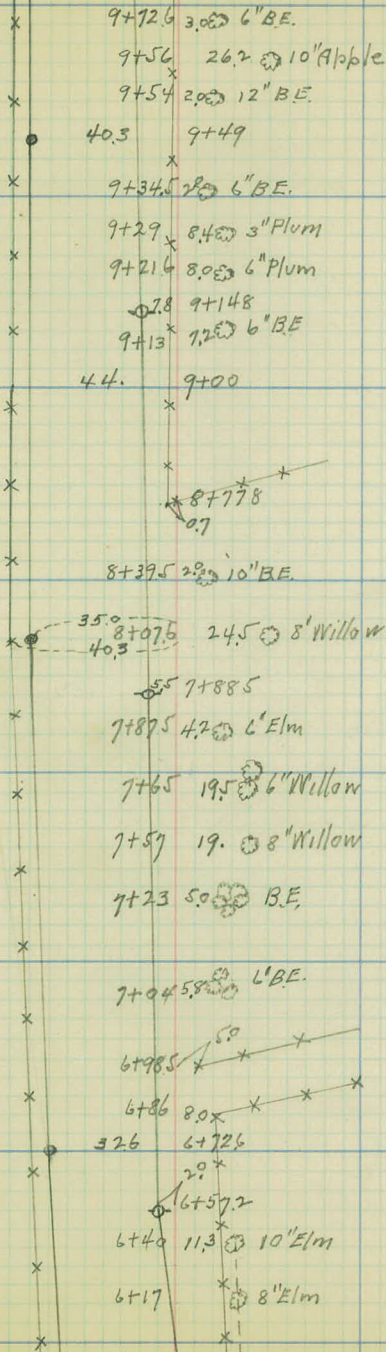 9+72.6 3.0 6" B.E.
9+56 26.2 10" Apple
9+54 2.0 12" B.E.
40.3 9+49
9+34.5 2.0 6" B.E.
9+29 8.4 3" Plum
9+21.6 8.0 6" Plum
7.8 9+14.8
9+13 7.2 6" B.E
44. 9+00
8+77.8
0.7
8+39.5 2.0 10" B.E.
35.0
8+07.5 24.5 8' Willow
40.3
5.5 7+88.5
7+87.5 4.2 6' Elm
7+65 19.5 6" Willow
7+57 19. 8" Willow
7+23 5.0 B.E.
7+04 5.8 6' B.E.
5.0
6+98.5
6+86 8.0
32.6 6+72.6
2.0
6+57.2
6+40 11.3 10" Elm
6+17 8" Elm